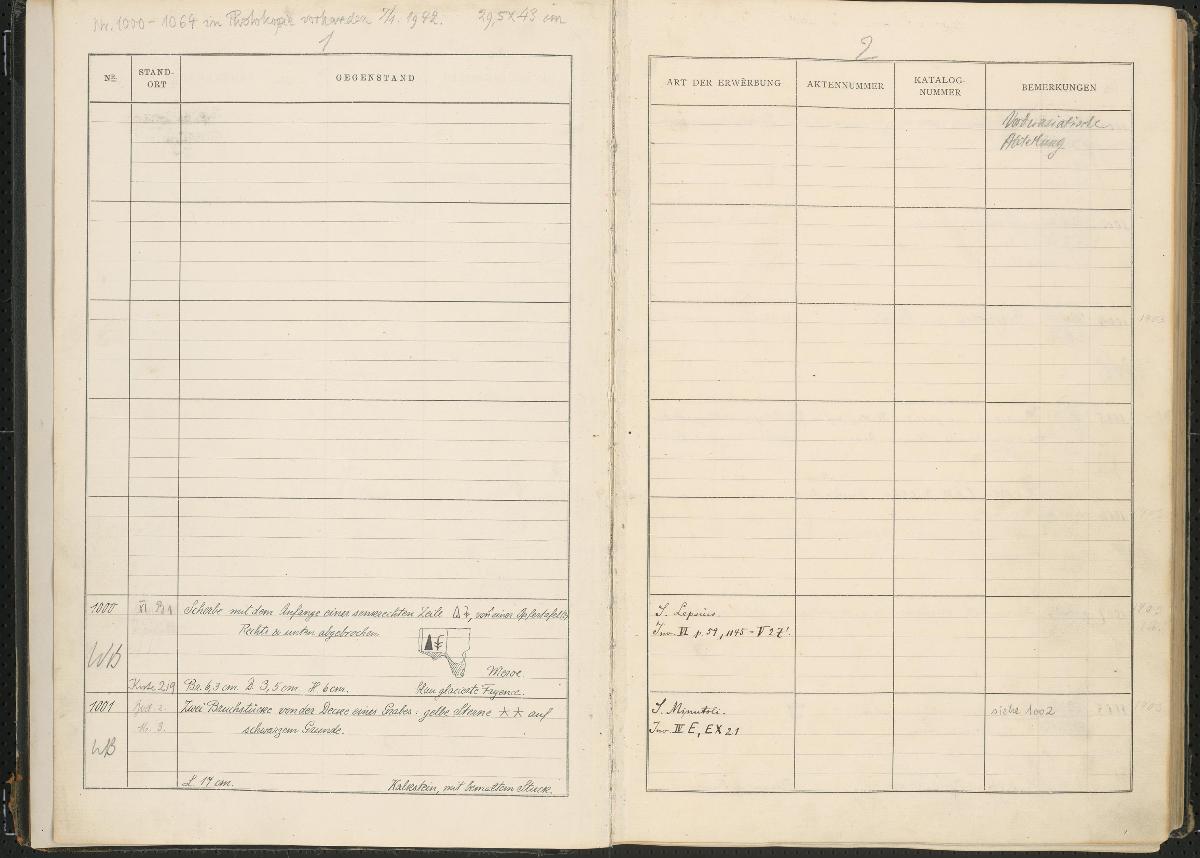 Nr. 1000-1064 in Photokopie vorhanden 1942. 29,5 x 43 cm
1
Nº.
STAND-
ORT
GEGENSTAND
1000
Scherbe mit dem Anfange einer senkrechten Zeile , von einer Opfertafel (?)
Rechts u unten abgebrochen.
WB
Meroe.
Kiste 219 Br. 6,3 cm. D. 3,5 cm. H. 6 cm. blau glasierte Fayence.
1001
Zwei Bruchstücke von der Decke eines Grabes: gelbe Sterne ** auf
Nr. 3. schwarzem Grunde.
WB
L 17 cm. Kalkstein, mit bemaltem Stuck.
2
ART DER ERWERBUNG
AKTENNUMMER
KATALOG-
NUMMER
BEMERKUNGEN
Vorderasiatische
Abteilung
S. Lepsius.
Inv. VI p. 59, 1145 - V 27'.
S. Minutoli.
Inv. III E, EX 21
siehe 1002